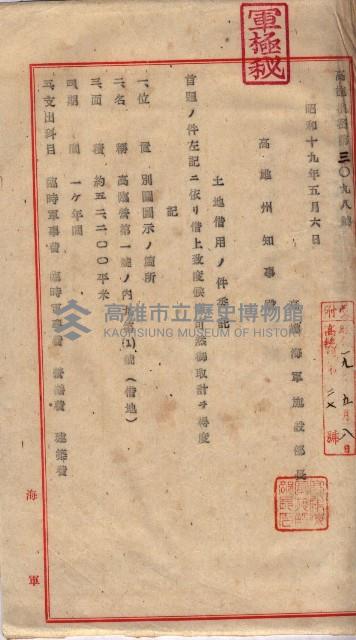 軍極秘
高施機密第三〇九八號
昭和十九年五月六日
高雄海軍施設部長
高雄州知事殿
土地借用ノ件
首題ノ件左記ニ依リ借上致度
記
一、位置 別圖圖示ノ箇所
二、名稱 高臨營第一號ノ內(1)號(借地)
三、面積 約五二二〇〇平米
四、期間 一ヶ年間
五、支出科目 臨時軍事費 臨時軍事費 營繕費 建築費
一九、五月八日
海軍
高雄市立歷史博物館
KAOHSIUNG MUSEUM OF HISTORY